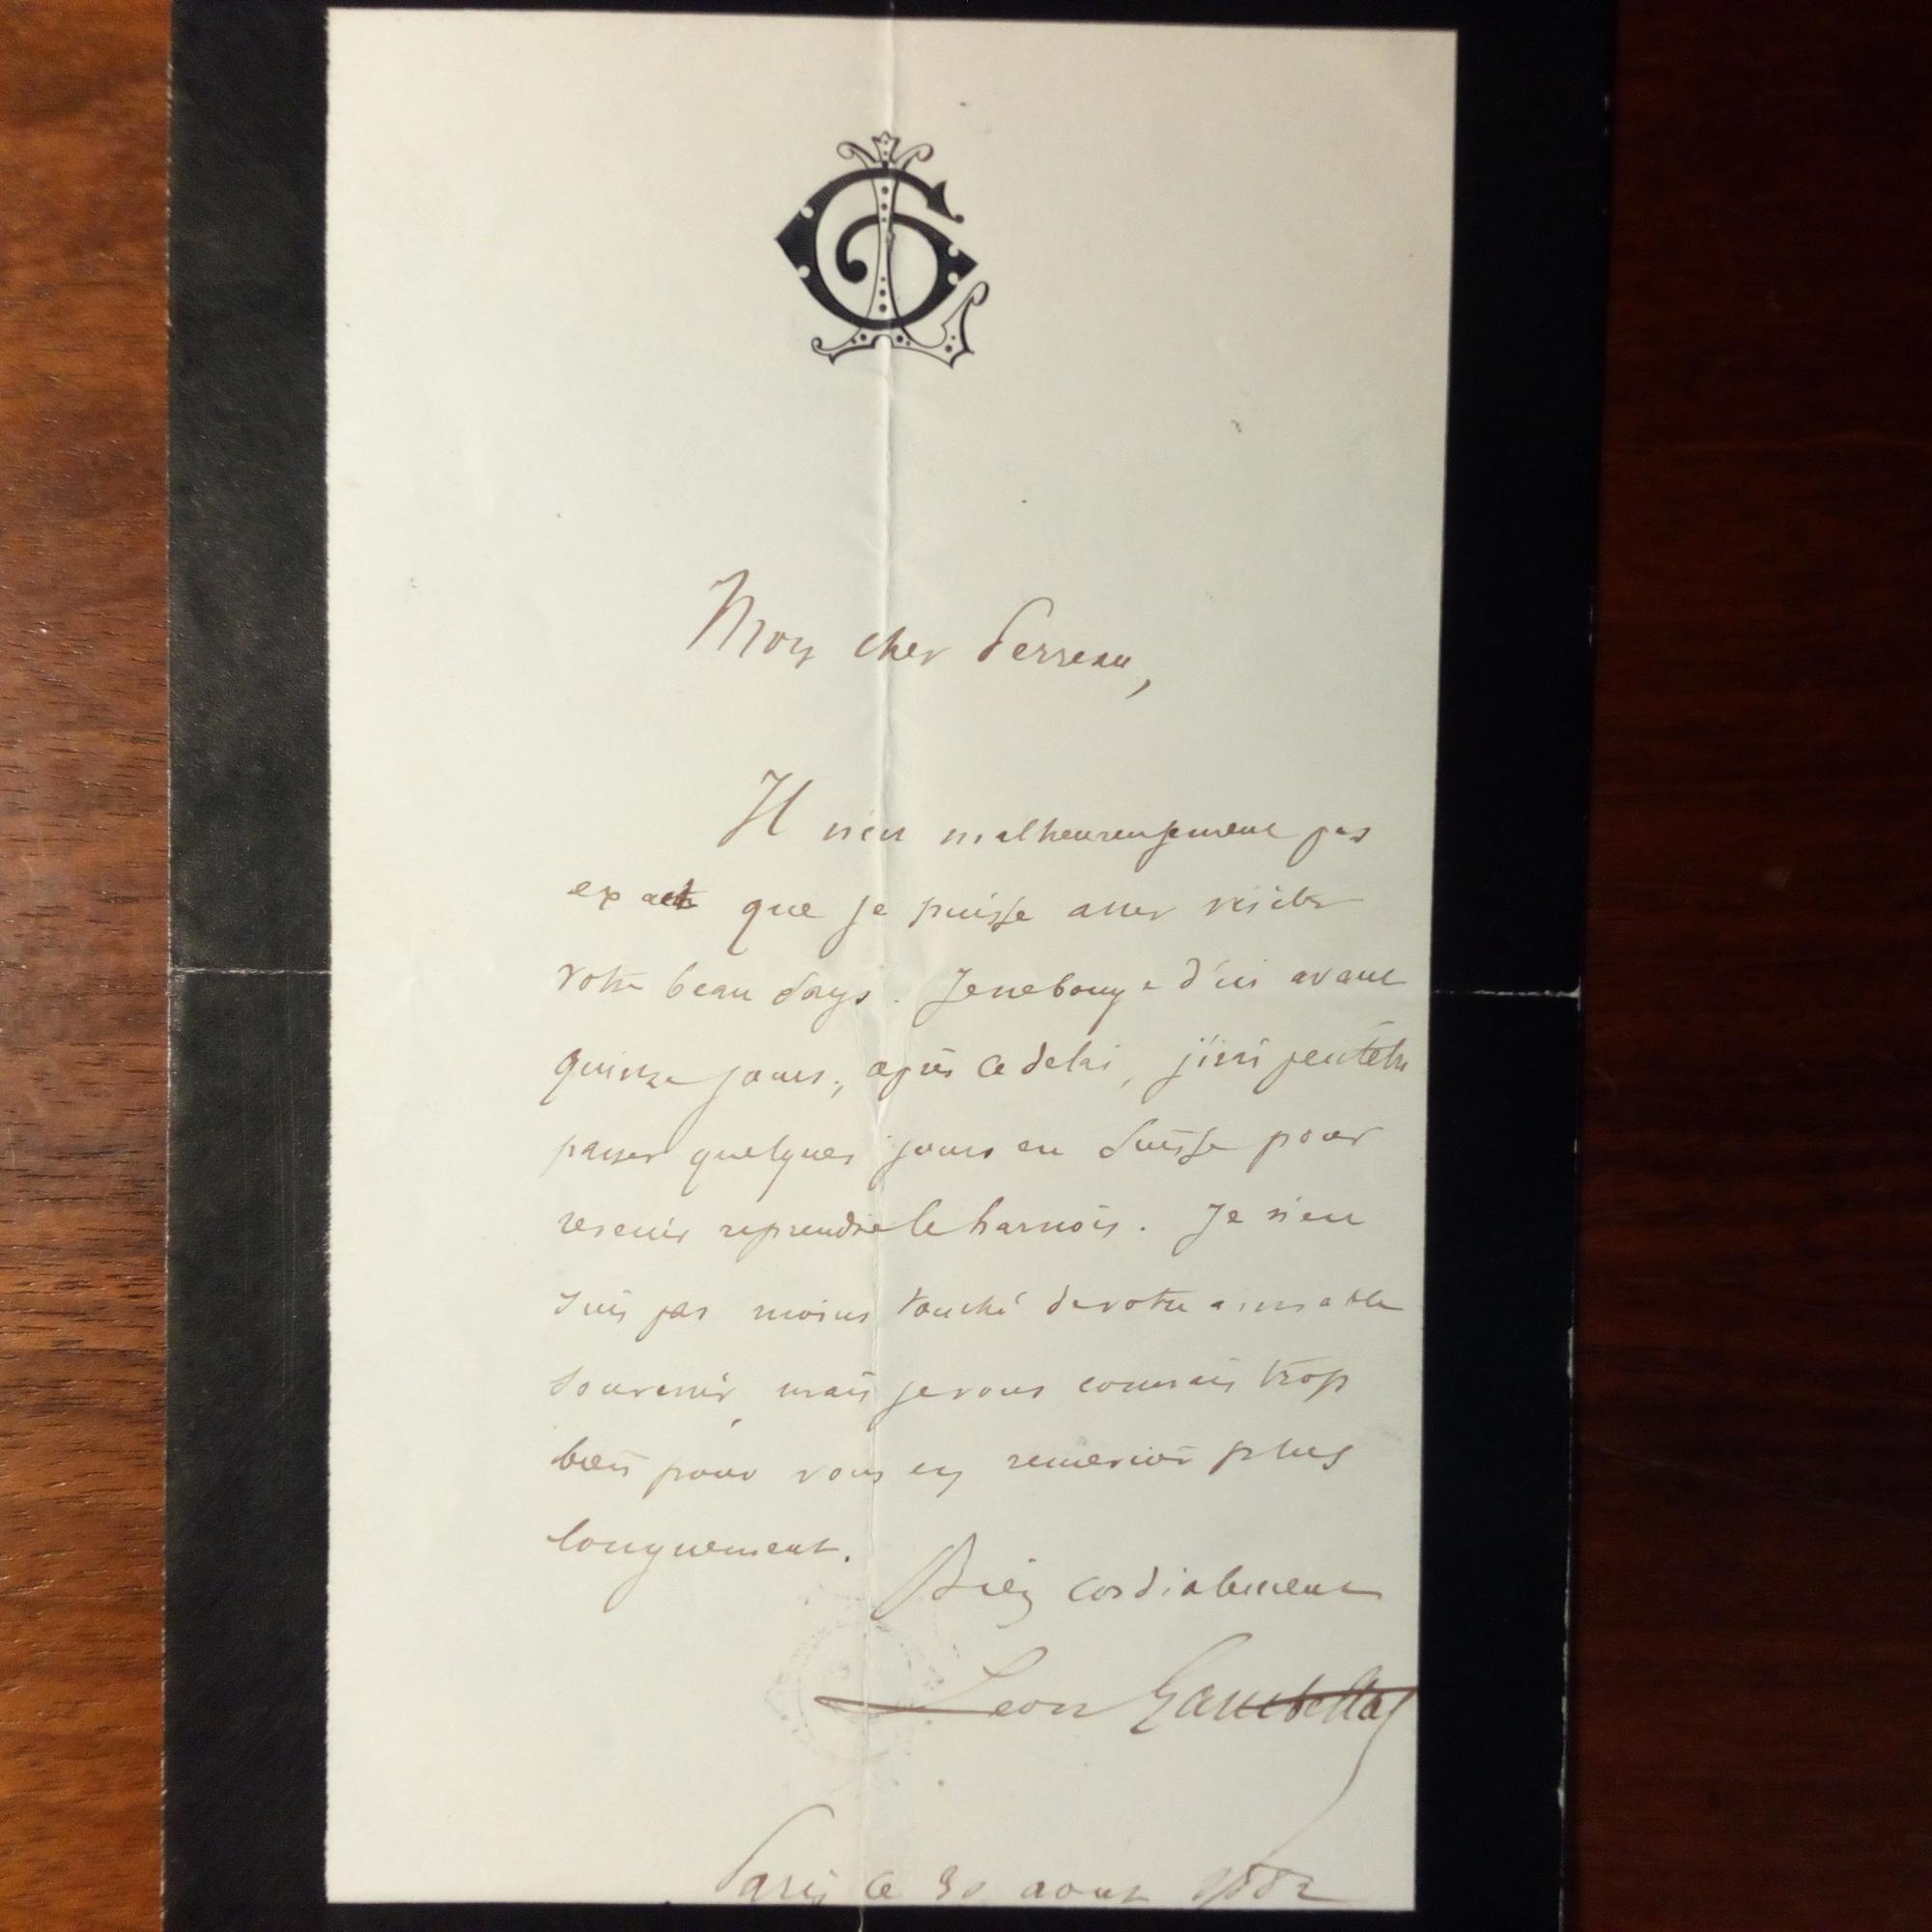 LG
Mon cher Perreau,
Il n'est malheureusement pas
exact que je puisse aller visiter
votre beau pays. Je ne bouge d'ici avant
quinze jours; après ce delai, j'irai peutêtre
passer quelques jours en Suisse pour
revenir reprendre le harnois. Je n'en
suis pas moins touché de votre aimable
souvenir, mais je vous connais trop
bien pour vous en remercier plus
longuement.
Bien cordialement
Leon Gambetta
Paris ce 30 aout 1882